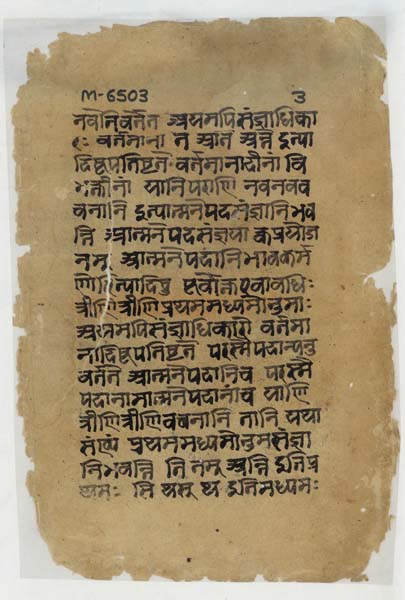 M-6503 ३
नवोनिवर्तत अयमपिसंज्ञाधिका
रः वर्तमाना त आत अन्ते इत्या
दिषुप्रतिष्टत वर्तमानादीनां वि
भक्तीनां यानि पराणि नवनवव
चनानि इत्यात्मनेपदसंज्ञानिभव
न्ति आत्मनेपदसंज्ञया क्व प्रयोज
नम् आत्मनेपदानिभावकर्म
णोरित्यादिषु पूर्वोक्तएवावधिः
त्रीणित्रीणिप्रथममध्यमोत्तमाः
अयमपिसंज्ञाधिकारो वर्तमा
नादिषुप्रतिष्टते परस्मैपदान्यनु
वर्तते आत्मनेपदानिच परस्मै
पदानामात्मनेपदानांच याणि
त्रीणित्रीणिवचनानि तानि यथा
संख्यं प्रथममध्यमोत्तमसंज्ञा
निभवन्ति ति तस् अन्ति इतिप्र
थमः सि थस् थ इतिमध्यमः